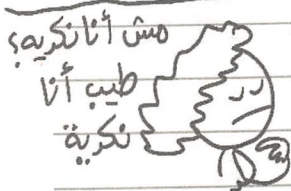 مش أنا نكريه؟
طيب أنا
نكرية